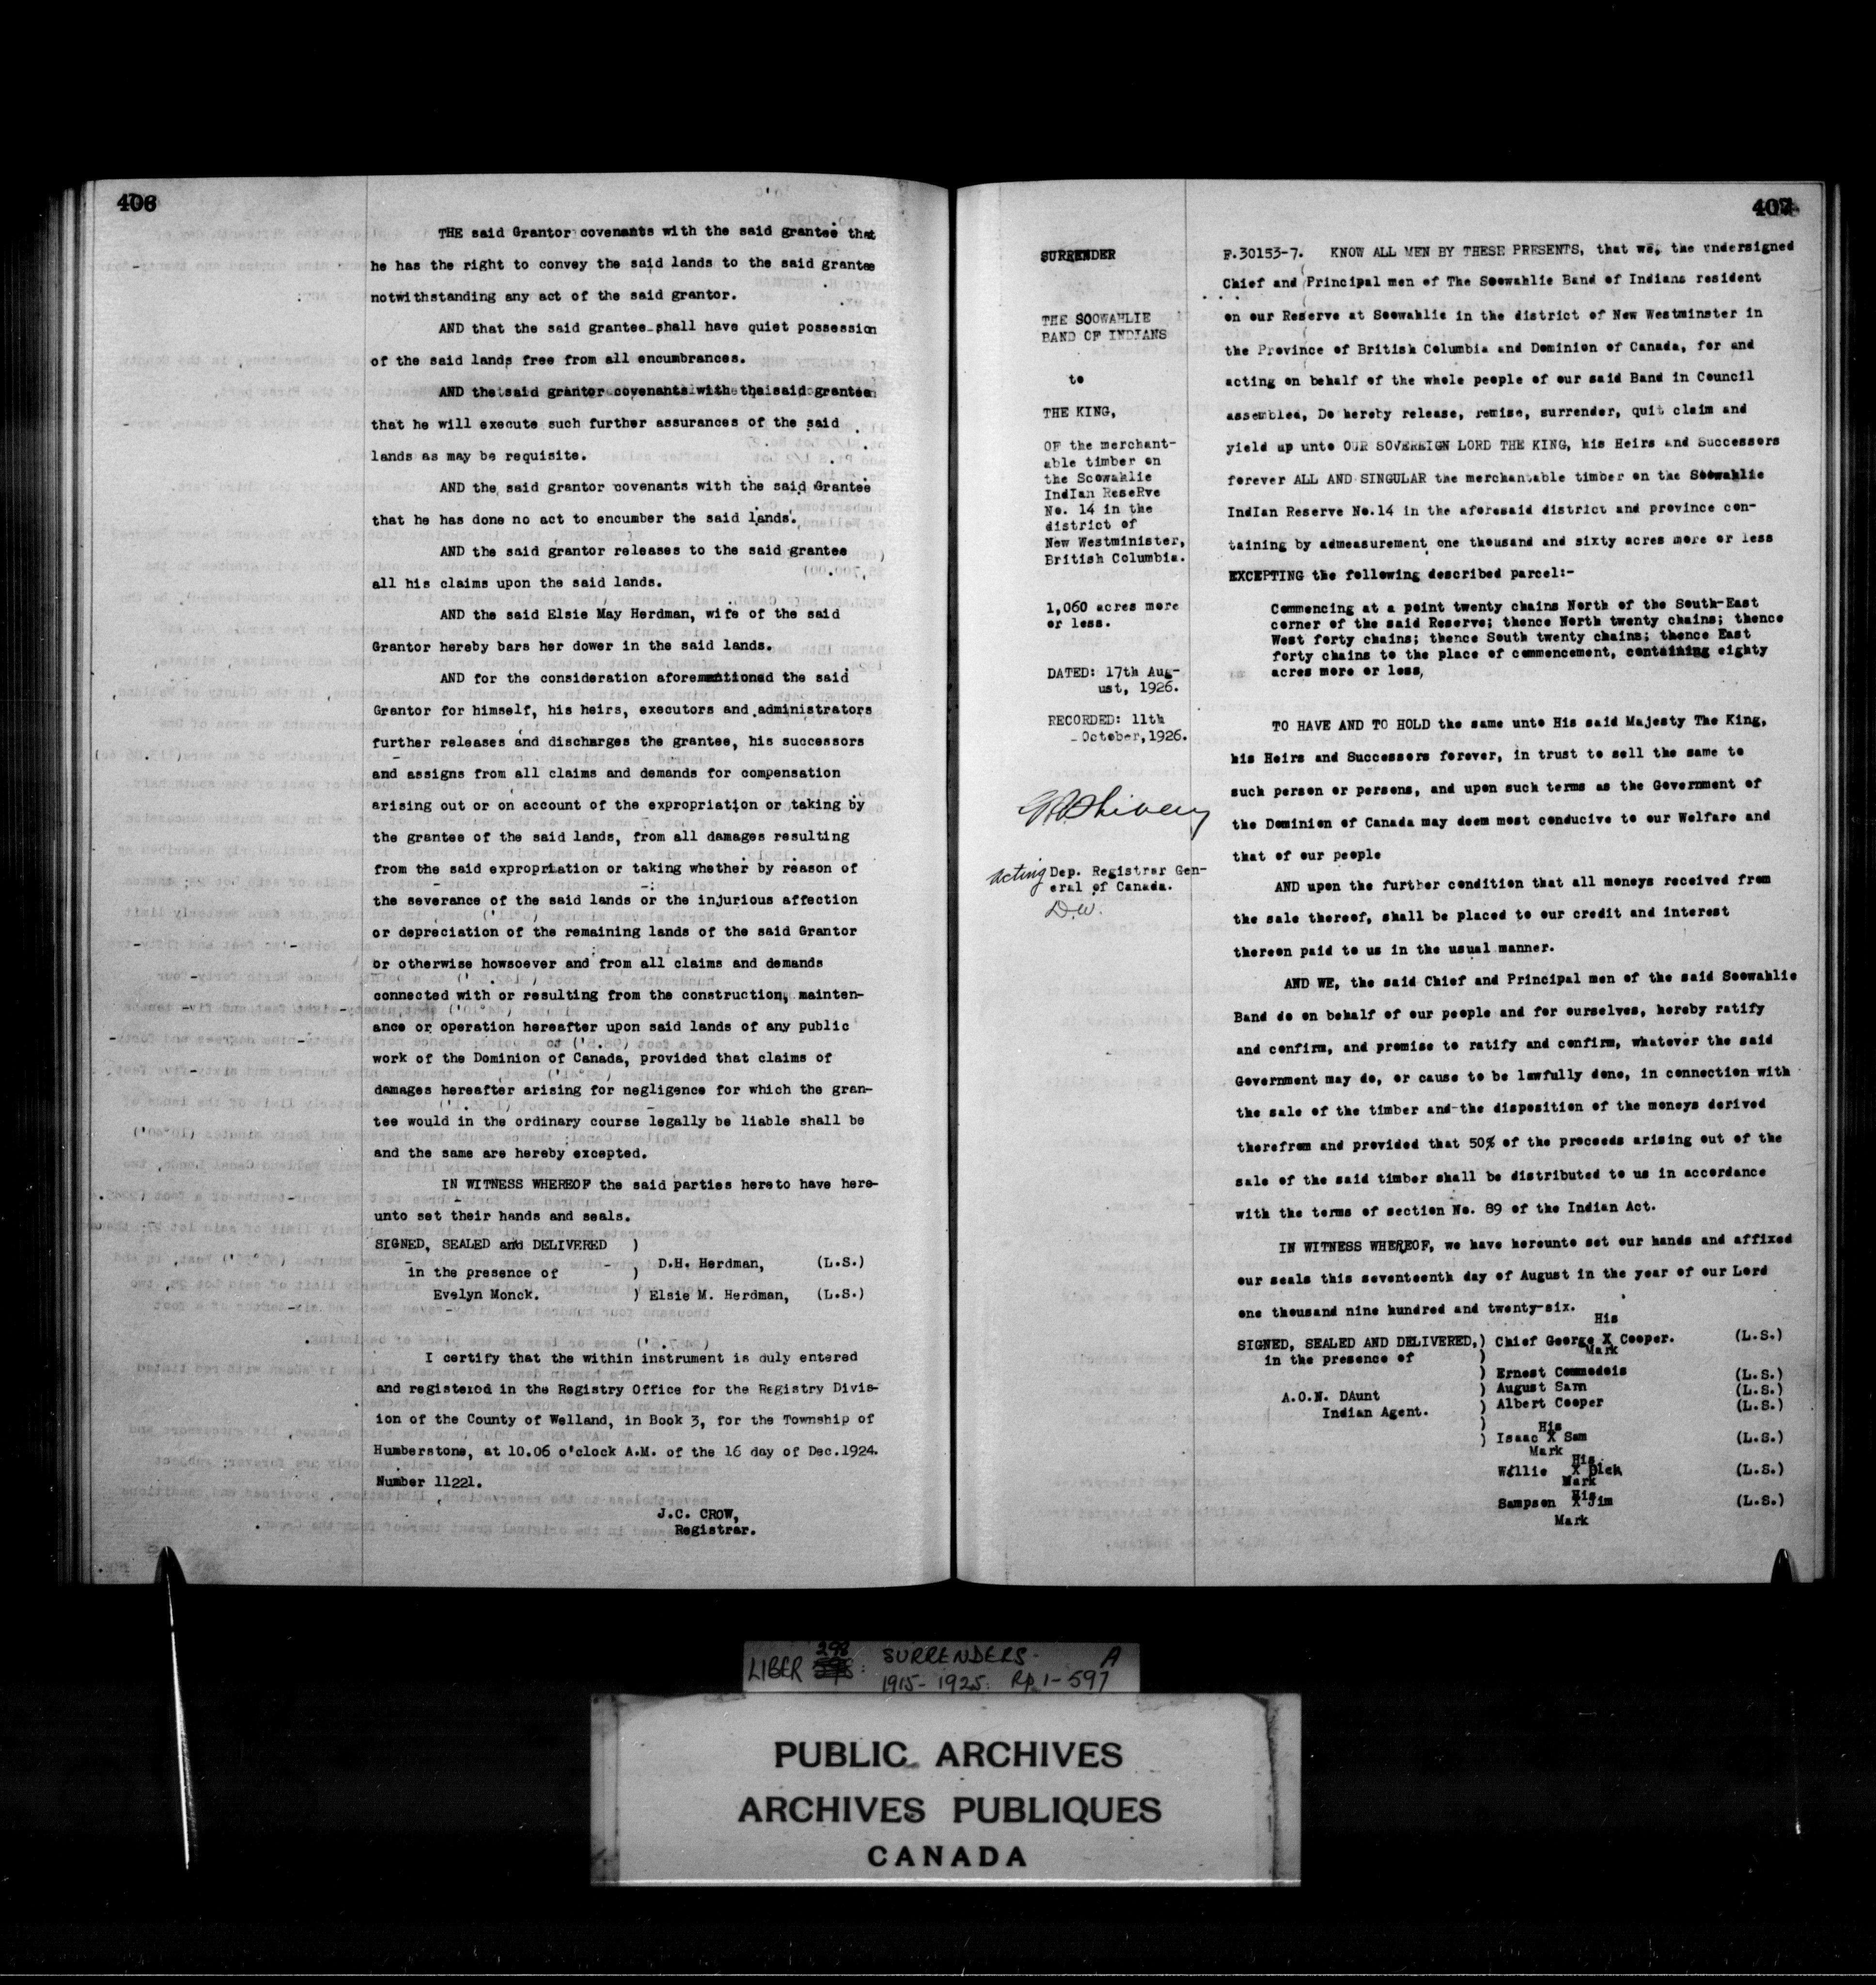 406
THE said Grantor covenants with the said grantee that
he has the right to convey the said lands to the said grantee
notwithstanding any act of the said grantor.
AND that the said grantee shall have quiet possession
of the said lands free from all encumbrances.
AND the said grantor covenants with the said grantee
that he will execute such further assurances of the said
lands as may be requisite.
AND the said grantor covenants with the said Grantee
that he has done no act to encumber the said lands.
AND the said grantor releases to the said grantee
all his claims upon the said lands.
AND the said Elsie May Herdman, wife of the said
Grantor hereby bars her dower in the said lands.
AND for the consideration aforementioned the said
Grantor for himself, his heirs, executors and administrators
further releases and discharges the grantee, his successors
and assigns from all claims and demands for compensation
arising out or on account of the expropriation or taking by
the grantee of the said lands, from all damages resulting
from the said expropriation or taking whether by reason of
the severance of the said lands or the injurious affection
or depreciation of the remaining lands of the said Grantor
or otherwise howsoever and from all claims and demands
connected with or resulting from the construction, mainten-
ance or operation hereafter upon said lands of any public
work of the Dominion of Canada, provided that claims of
damages hereafter arising for negligence for which the gran-
tee would in the ordinary course legally be liable shall be
and the same are hereby excepted.
IN WITNESS WHEREOF the said parties hereto have here-
unto set their hands and seals.
SIGNED, SEALED and DELIVERED )
in the presence of ) D.H. Herdman, (L.S.)
Evelyn Monck. ) Elsie M. Herdman, (L.S.)
I certify that the within instrument is duly entered
and registered in the Registry Office for the Registry Divis-
ion of the County of Welland, in Book 3, for the Township of
Humberstone, at 10.06 o'clock A.M. of the 16 day of Dec.1924.
Number 11221.
J.C. CROW,
Registrar.
407
SURRENDER
THE SOOWAHLIE
BAND OF INDIANS
to
THE KING,
OF the merchant-
able timber on
the Soowahlie
IndIan ReseRve
No. 14 in the
district of
New Westminister,
British Columbia.
1,060 acres more
or less.
DATED: 17th Aug-
ust, 1926.
RECORDED: 11th
October, 1926.
acting Dep. Registrar Gen-
eral of Canada.
D.W.
F.30153-7. KNOW ALL MEN BY THESE PRESENTS, that we, the undersigned
Chief and Principal men of The Soowahlie Band of Indians resident
on our Reserve at Soowahlie in the district of New Westminster in
the Province of British Columbia and Dominion of Canada, for and
acting on behalf of the whole people of our said Band in Council
assembled, Do hereby release, remise, surrender, quit claim and
yield up unto OUR SOVEREIGN LORD THE KING, his Heirs and Successors
forever ALL AND SINGULAR the merchantable timber on the Soowahlie
IndIan Reserve No.14 in the aforesaid district and province con-
taining by admeasurement one thousand and sixty acres more or less
EXCEPTING the following described parcel:-
Commencing at a point twenty chains North of the South-East
corner of the said Reserve; thence North twenty chains; thence
West forty chains; thence South twenty chains; thence East
forty chains to the place of commencement, containing eighty
acres more or less,
TO HAVE AND TO HOLD the same unto His said Majesty The King,
his Heirs and Successors forever, in trust to sell the same to
such person or persons, and upon such terms as the Government of
the Dominion of Canada may deem most conducive to our Welfare and
that of our people
AND upon the further condition that all moneys received from
the sale thereof, shall be placed to our credit and interest
thereon paid to us in the usual manner.
AND WE, the said Chief and Principal men of the said Soowahlie
Band do on behalf of our people and for ourselves, hereby ratify
and confirm, and promise to ratify and confirm, whatever the said
Government may do, or cause to be lawfully done, in connection with
the sale of the timber and the disposition of the moneys derived
therefrom and provided that 50% of the proceeds arising out of the
sale of the said timber shall be distributed to us in accordance
with the terms of section No. 89 of the Indian Act.
IN WITNESS WHEREOF, we have hereunto set our hands and affixed
our seals this seventeenth day of August in the year of our Lord
one thousand nine hundred and twenty-six.
His
SIGNED, SEALED AND DELIVERED,) Chief George X Cooper. (L.S.)
Mark
in the presence of )
) Ernest Commodois (L.S.)
A.O.N. DAunt ) August Sam (L.S.)
Indian Agent. ) Albert Cooper (L.S.)
) His
) Isaac X Sam (L.S.)
Mark
His
Willie X Dick (L.S.)
Mark
His
Sampson X Jim (L.S.)
Mark
LIBER 298: SURRENDERS. A
1915-1925. Pp 1-597
PUBLIC ARCHIVES
ARCHIVES PUBLIQUES
CANADA